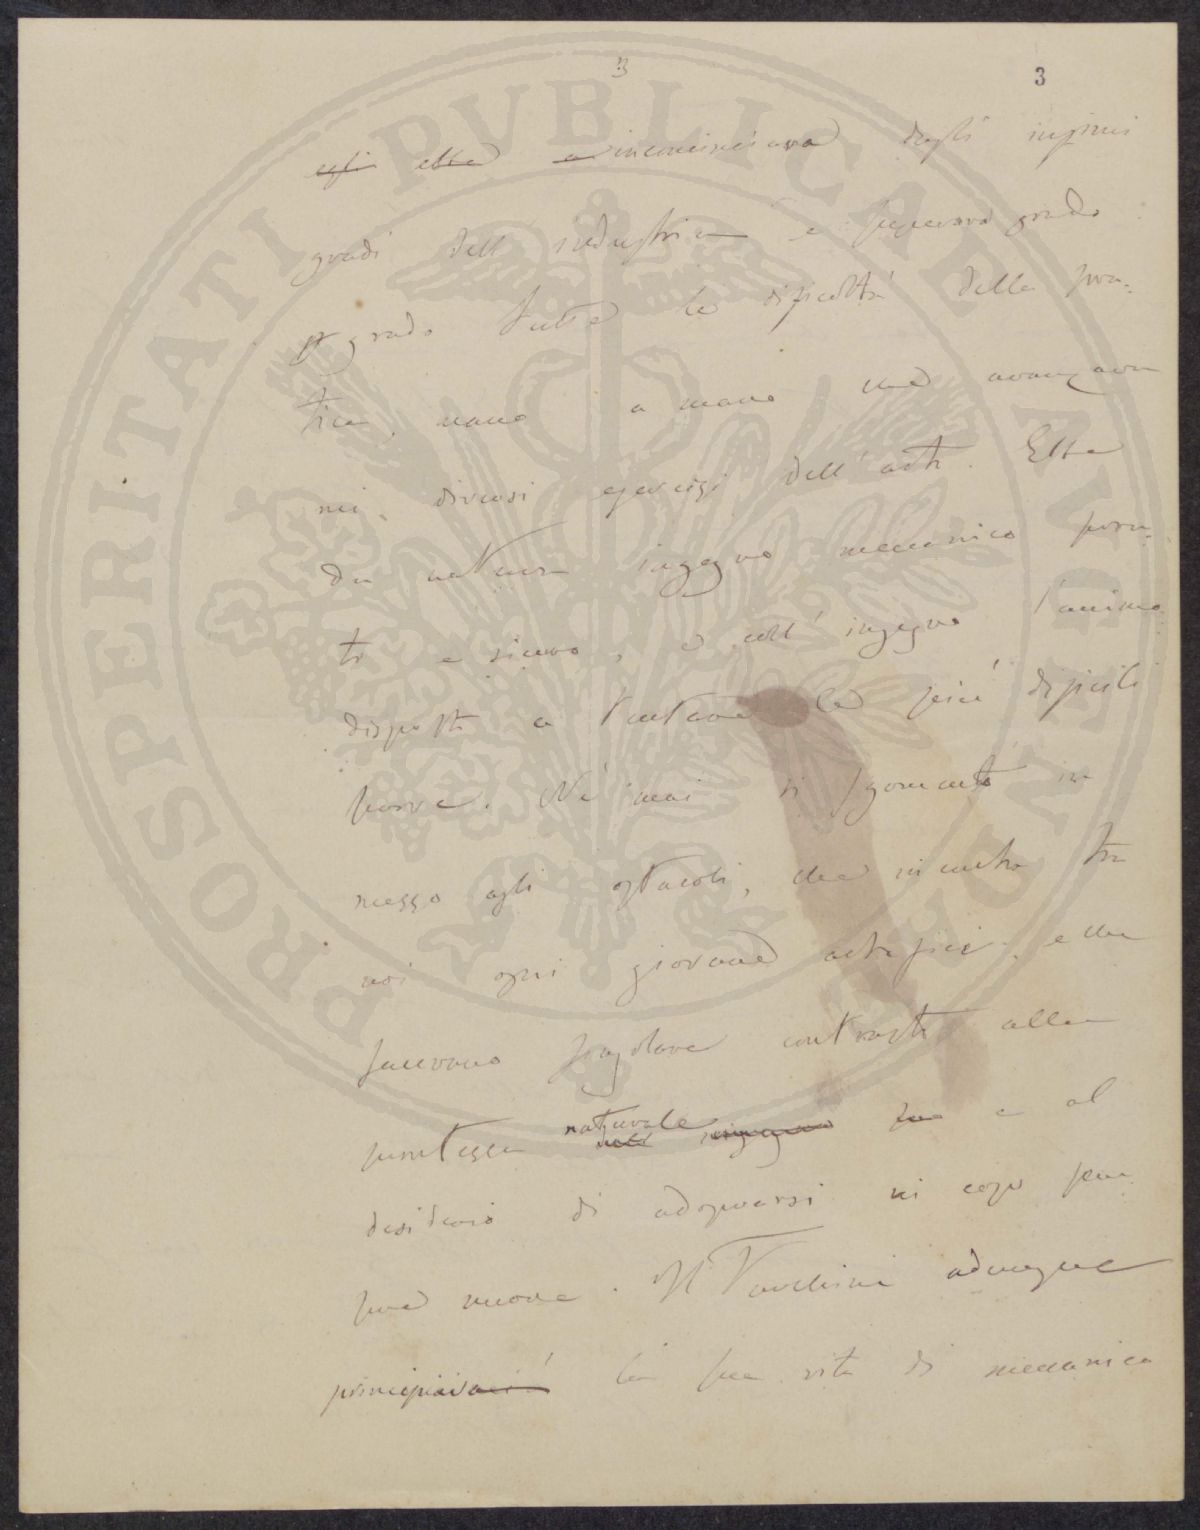 3
3
egli ebbe a incominciava dagli infimi
gradi dell industria e superava grado
a grado tutte le dificoltà della pra-
tica, mano a mano che avanzava
nei diversi esercizi dell'arte. Ebbe
da natura ingegno meccanico pron-
to e sicuro, e coll'ingegno l'animo
disposto a tentare le più dificili
prove. Nè mai si sgomentò in
mezzo agli ostacoli, che incontra tra
noi ogni giovane artefice, e che
facevano singolare contrasto alla
prontezza naturale dell' ingegno suo e al
desiderio di adoperarsi in cose sem
pre nuove. Il Tavchini adunque
principiava la sua vita di meccanico
PROSPERITATI PVBLICAE AVGENDAE